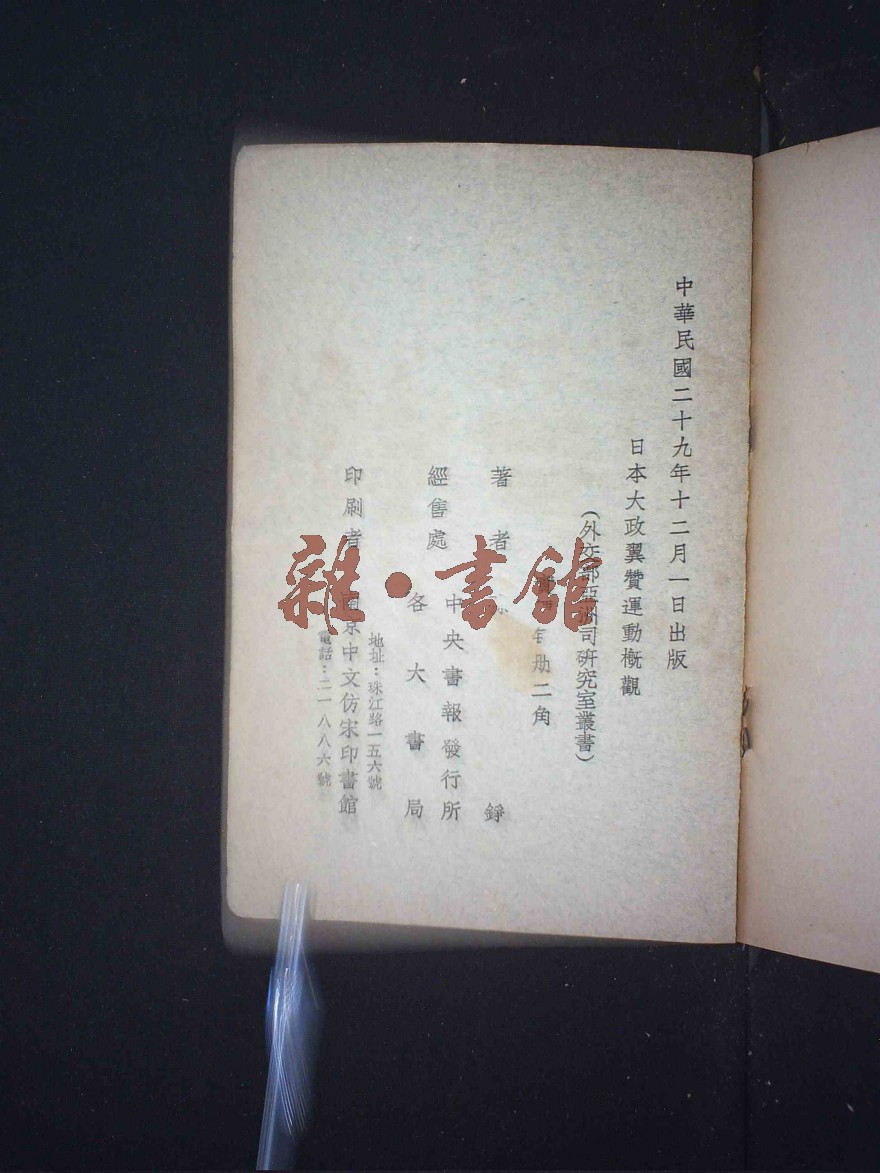 中華民國二十九年十二月一日出版
日本大政翼贊運動概觀
(外交部亞洲司研究室叢書)
册二角
著者 錚
經售處 中央書報發行所
各大書局
地址：珠江路一五六號
印刷者 南京中文仿宋印書館
電話：二一八八六號
雜·書館